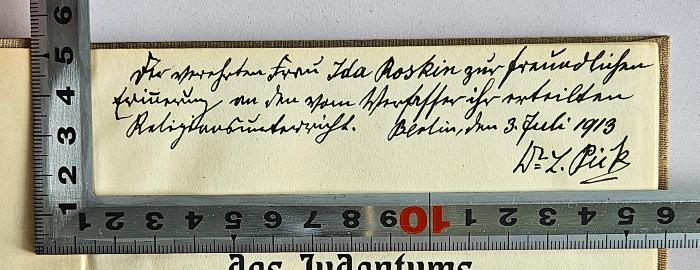 Der verehrten Frau Ida Roskin zur freundlichen
Erinnerung an den vom Verfasser ihr erteilten
Religionsunterricht. Berlin, den 3. Juli 1913
Dr. L. Pick
6
5
4
3
2
1
1 2 3 4 5 6 7 8 9 10 1 2 3 4 5 6
des Judentums